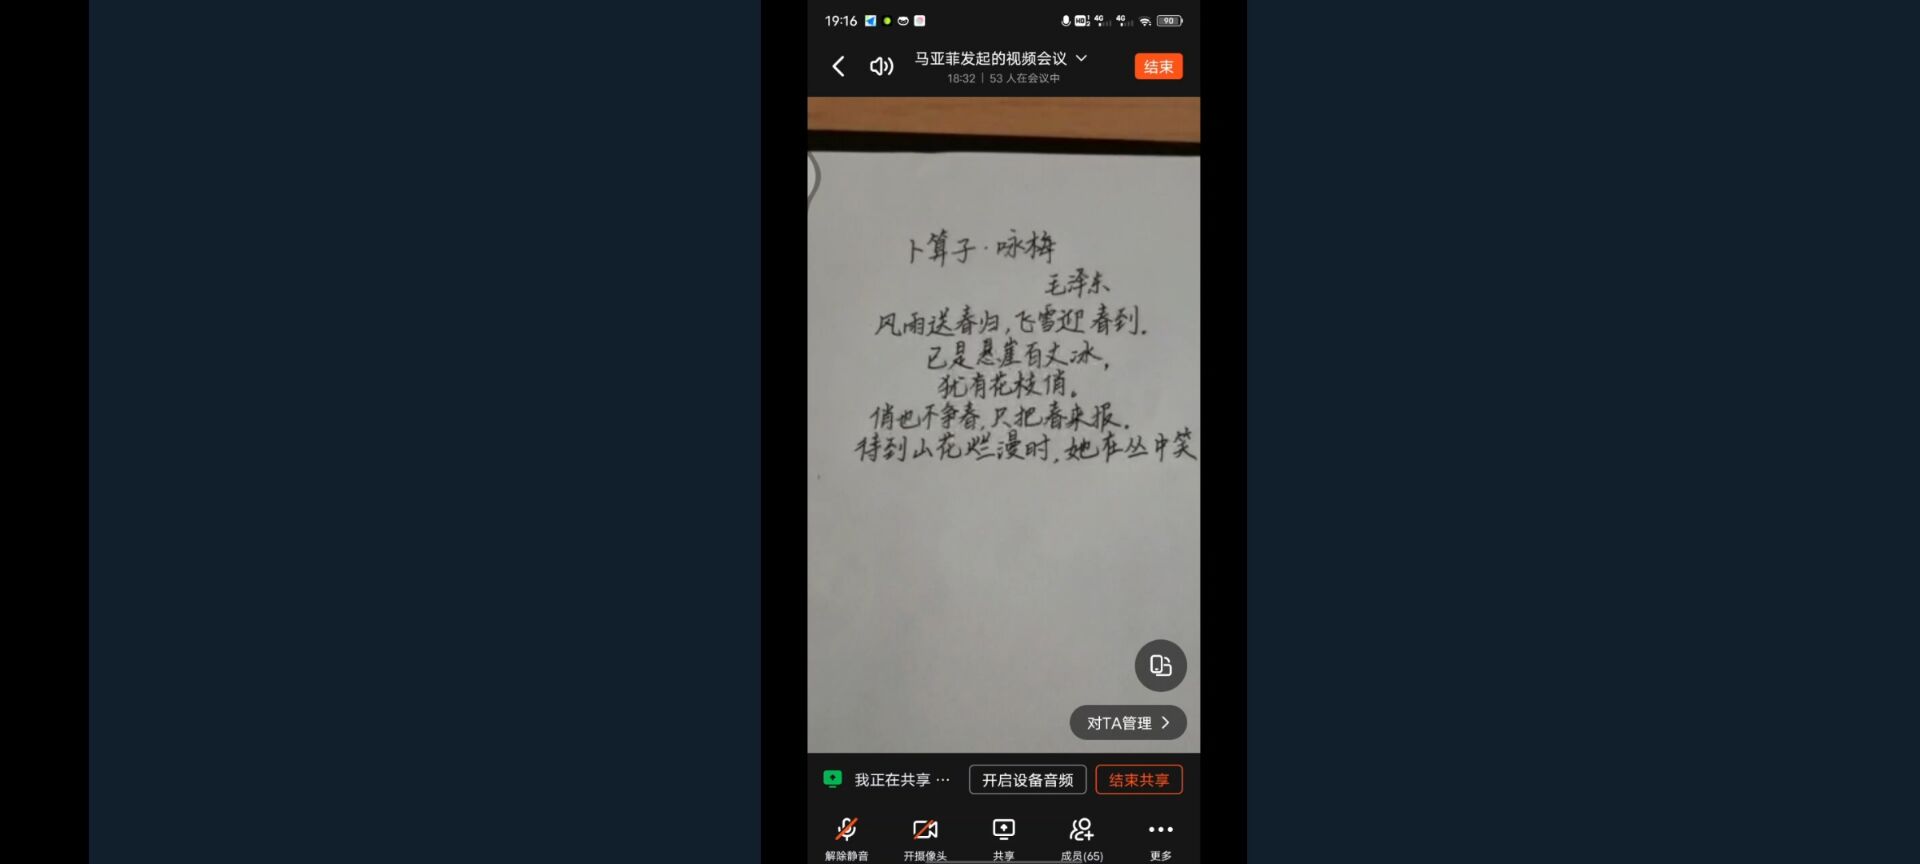 19:16
90
马亚菲发起的视频会议
18:32 | 53 人在会议中
结束
卜算子·咏梅
毛泽东
风雨送春归,飞雪迎春到.
已是悬崖百丈冰,
犹有花枝俏。
俏也不争春,只把春来报.
待到山花烂漫时,她在丛中笑
对TA管理
我正在共享 ···
开启设备音频
结束共享
解除静音
开摄像头
共享
成员(65)
更多